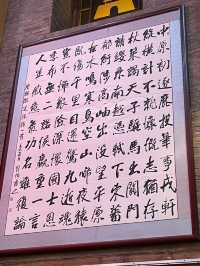 中原初逐鹿投筆事戎軒
縱橫計不就慷慨志猶存
杖策謁天子驅馬出關門
請纓繫南越憑軾下東藩
鬱紆陟高岫出沒望平原
古木鳴寒鳥空山啼夜猿
既傷千里目還驚九逝魂
豈不憚艱險深懷國士恩
季布無二諾侯嬴重一言
人生感意氣功名誰復論